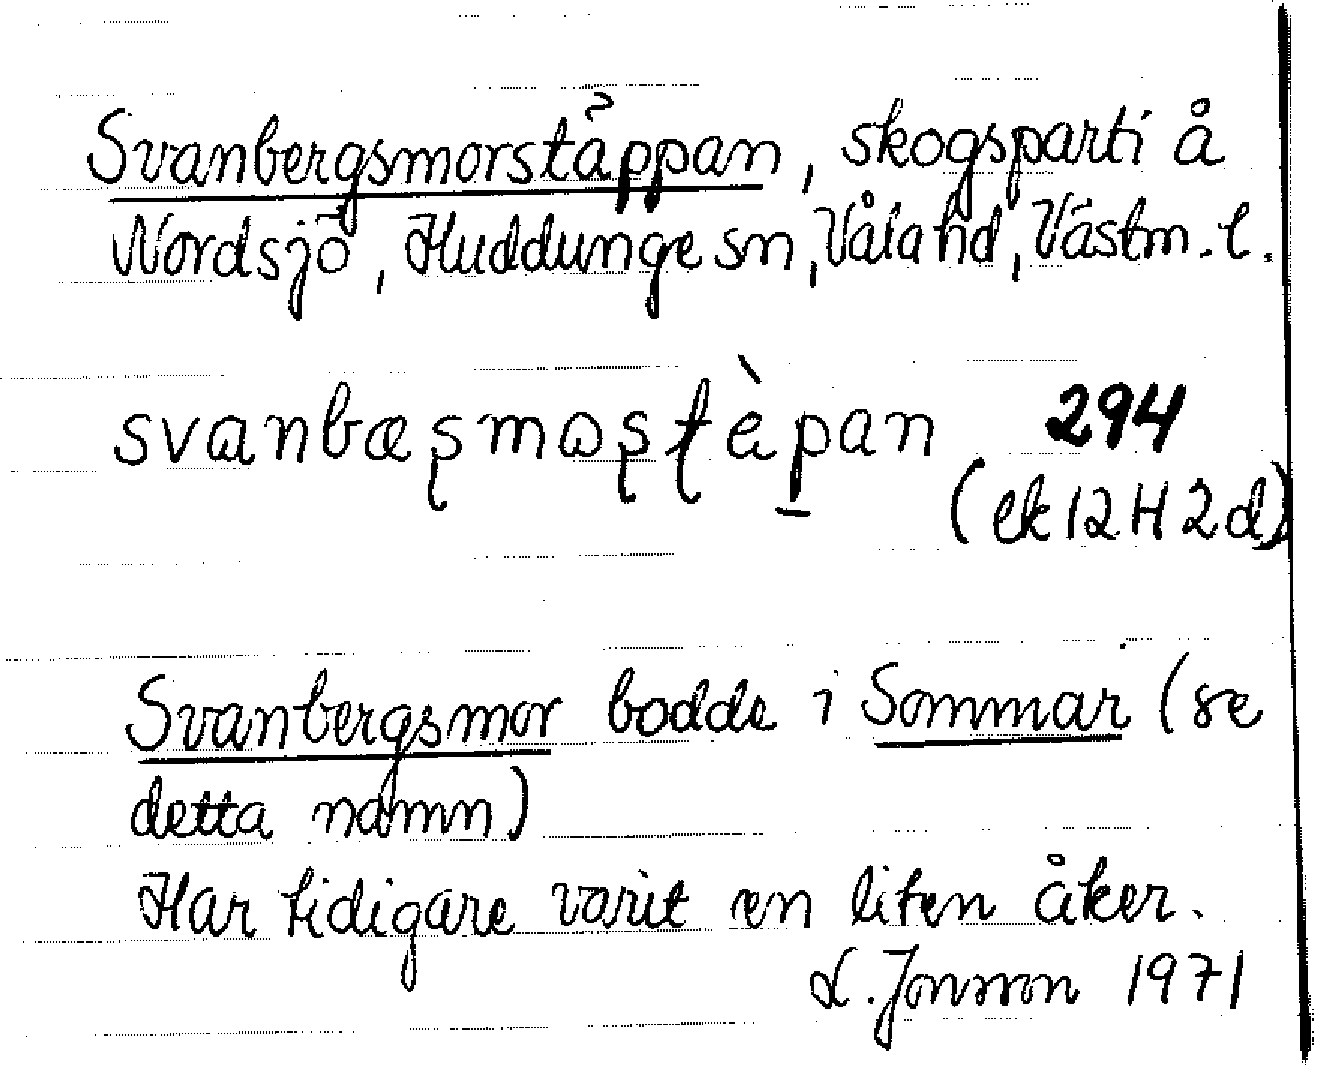 Svanbergsmorstäppan, skogsparti å
Nordsjö, Huddunge sn, Våla hd, Västm. l.
svanbæʂmɷʂʈèp̱an 294
(ek 12 H 2 d)
Svanbergsmor bodde i Sommar (se
detta namn)
Har tidigare varit en liten åker.
L. Jonsson 1971